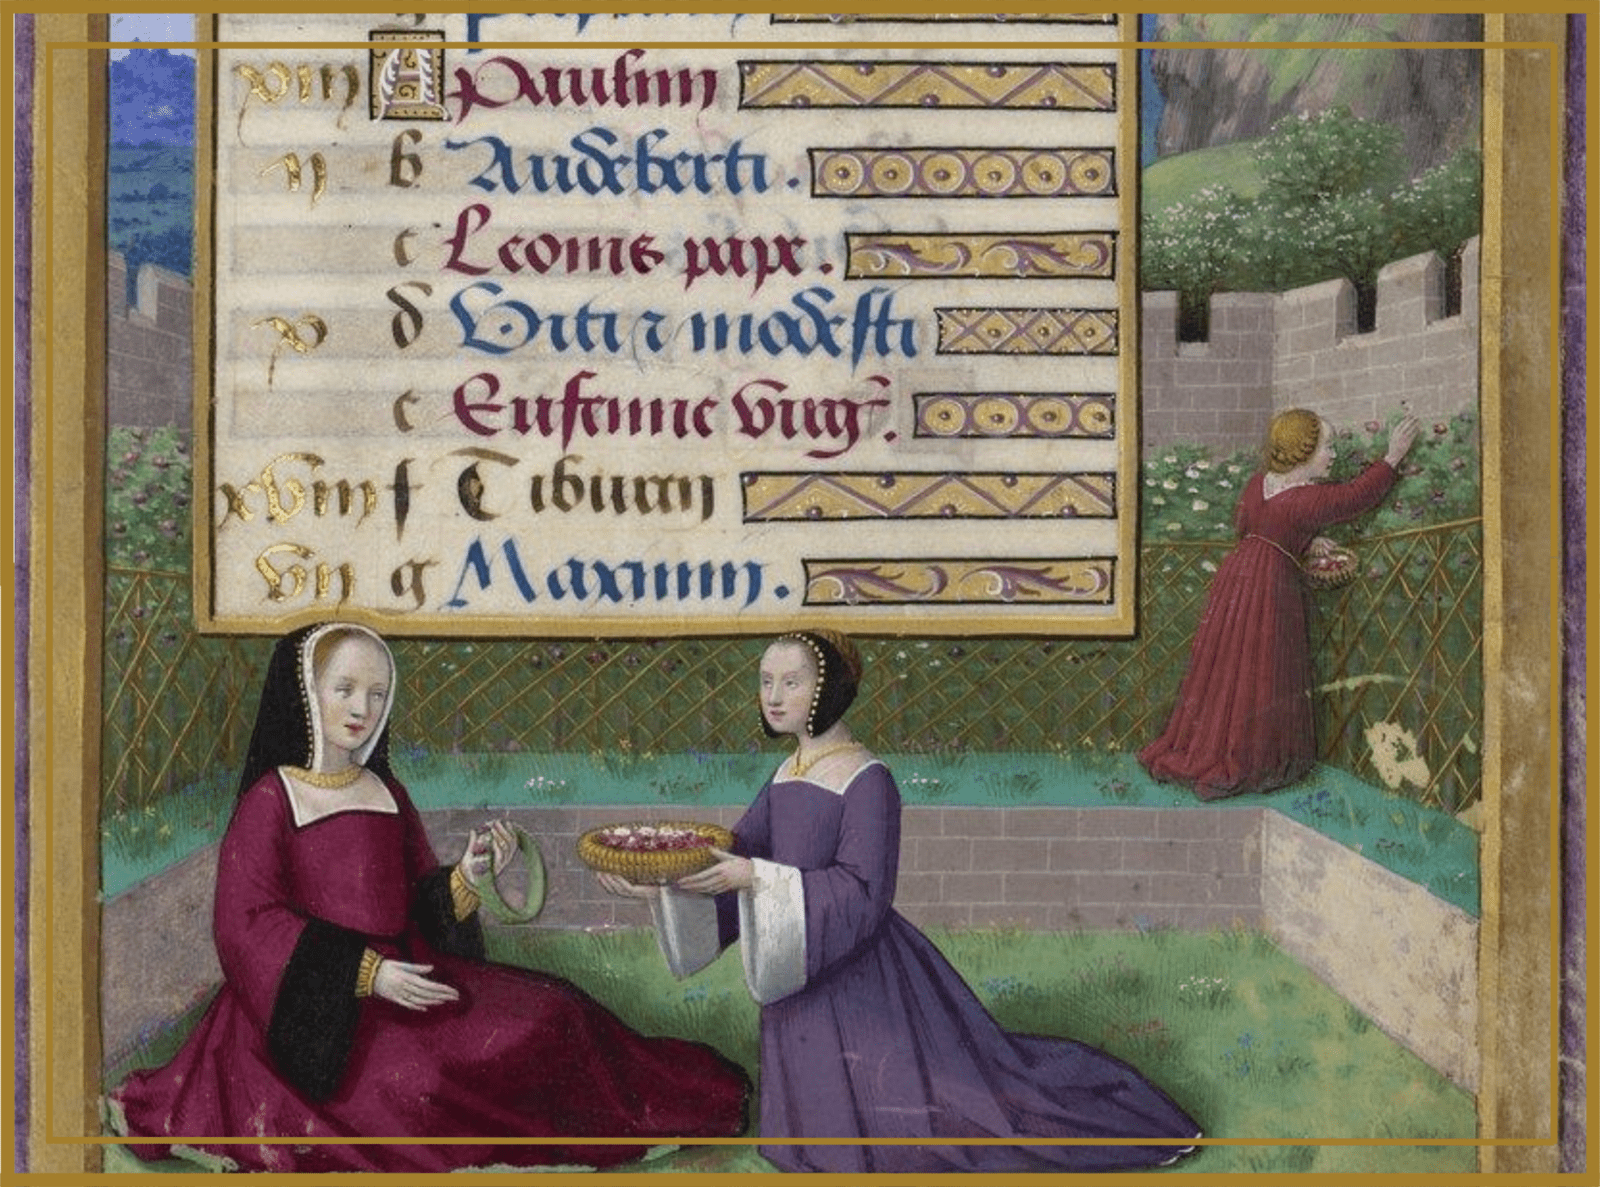 xiij A Paulini
ij b Audeberti.
c Leonis pape.
x d Viti ⁊ modesti
e Eufemie virg.
xviij f Tiburcij
vij g Maximi.